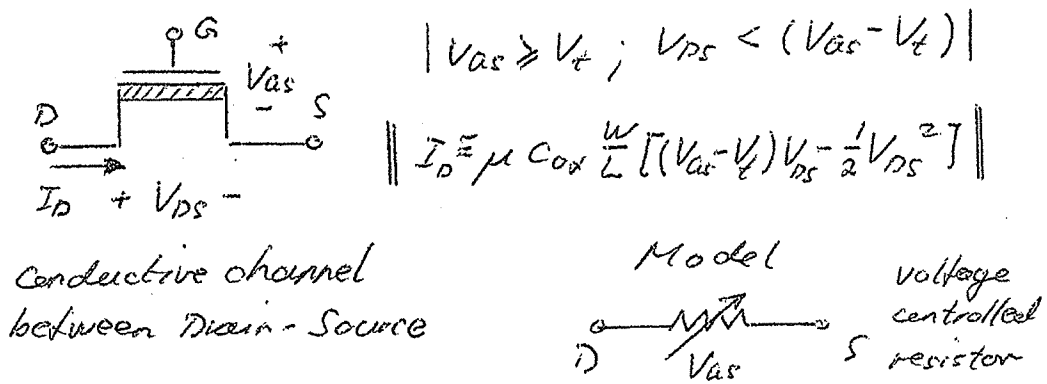 G
+
V_GS
-
D
S
I_D + V_DS -
| V_GS ≥ V_t ; V_DS < (V_GS - V_t) |
‖ I_D = μ C_ox W/L [(V_GS - V_t) V_DS - 1/2 V_DS²] ‖
Conductive channel
between Drain-Source
Model
D
V_GS
S
voltage
controlled
resistor